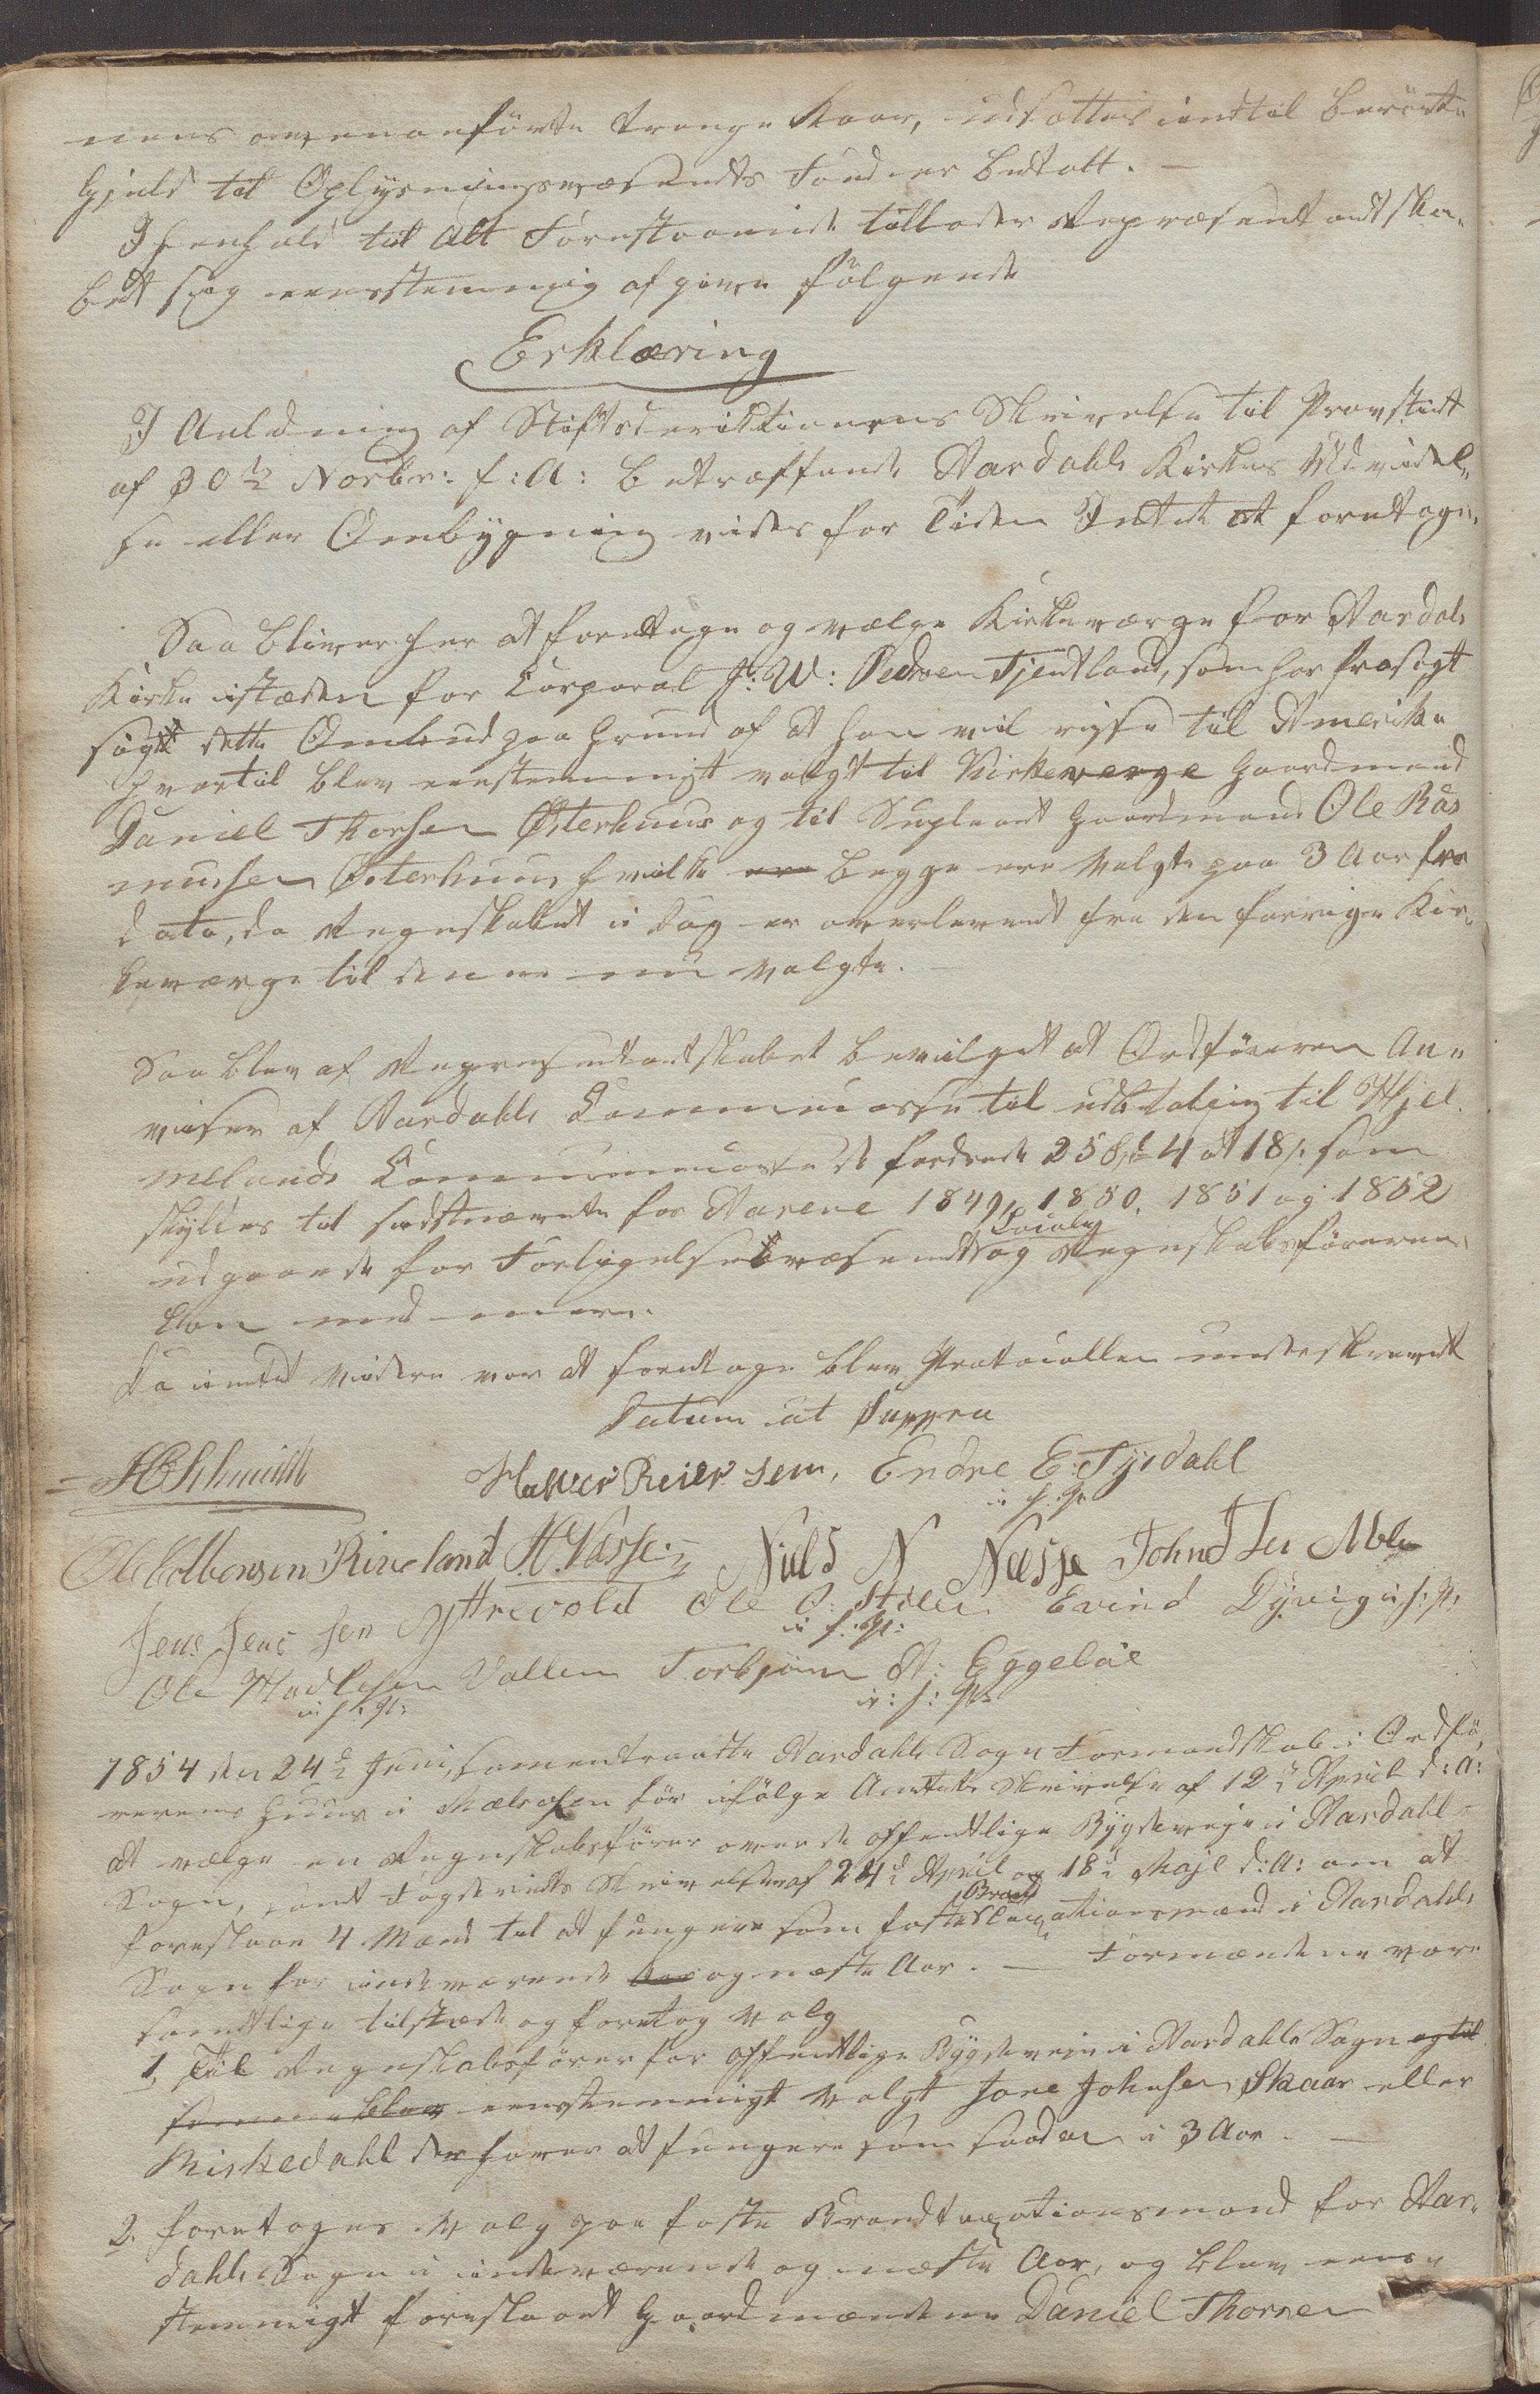 nens ovenanførte trange Kaar, udsættes indtil berørte
Gjeld til Oplysningsvæsendts Fond er betalt. —
I henhold til alt Forestaaende tillader Repræsentantska„
bet sig eensstemmig afgiven følgende
Erklæring
I Anledning af Stiftsdirektionens Skrivelse til Provstiet
af 30te Novbr: f: A: betræffende Aardahls Kirkes Udvidel„
se eller Ombygning vides for Tiden Intet at foretage.
Saa bliver her at foretage og vælge Kirkeværge for Aardals
Kirke istæden for Corporal J: W: Pedersen Tjentland, som har frasigt
sigt dette Ombud paa Grund af at han vil reise til Amerika
hvortil blev eenstemmigt valgt til Kirkeverge Gaardmand
Daniel Thorsen Østerhuus og til Supleant Gaardmand Ole Ras
mussen Østerhuus hvilke ere begge ere valgte paa 3 Aar fra
dato, da Regnskabet i Dag er overleveret fra den forrige Kir„
keværge til denne nu valgte. —
Saa blev af Repræsentantskabet bevilget at Ordføreren An„
viser af Aardahls Communecasse til udbetaling til Hjel„
melands Communecasse de fordrede 258 Spd 4 ort 18 s. som
skyldes til sidstnævnte for Aarene 1849, 1850, 1851 og 1852
udgaaende for Forligelsesvæsendts Locale og Regnskabsførerens
Løn med mere.
Da intet videre var at foretage blev Protocollen underskrevet
Datum ut Suppra
H Schmidt Halver Reier sen, Endre E: Tysdahl
i f. P.
Ole Colbensen Riveland H. Vasse Niels N Nessje John J Sen Mele
Jens Jens sen Yttrevold Ole O: Stølen Evind Dyvig i f: P.
i f. P:
Ole Hadlesen Vallen Torbjørn A: Eggebøe
i f: P: i: f: P:
1854 den 24de Juni, samentraadte Aardahls Sogns Formandskab i Ordfø„
rerens Huus i Mælaasen for ifølge Amtets Skrivelse af 12te April d: A:
at vælge en Regnskabsfører over de offentlige Bygdeveje i Aardahls
Sogn, samt Fogderiets Skrivelser af 24de April og 18de Maje d: A: om at
foreslaae 4 Mænd til at fungere som faste Brandtaxationsmænd i Aardahls
Sogn for indeværende Aar og næste Aar. — Formændene vare
samtlige tilstæde og foretog Valg
1, Til Regnskabsfører for offentlige Bygdeveje i Aardahls Sogn og til
samme blev eenstemmigt valgt Jone Johnsen Skaar eller
Riskedahl der haver at fungere som saadan i 3 Aar. —
2. foretoges Valg paa faste Brandtaxationsmænd for Aar„
dahls Sogn i indeværende og næste Aar, og blev eens„
stemmigt foreslaaet Gaardmændene Daniel Thorsen